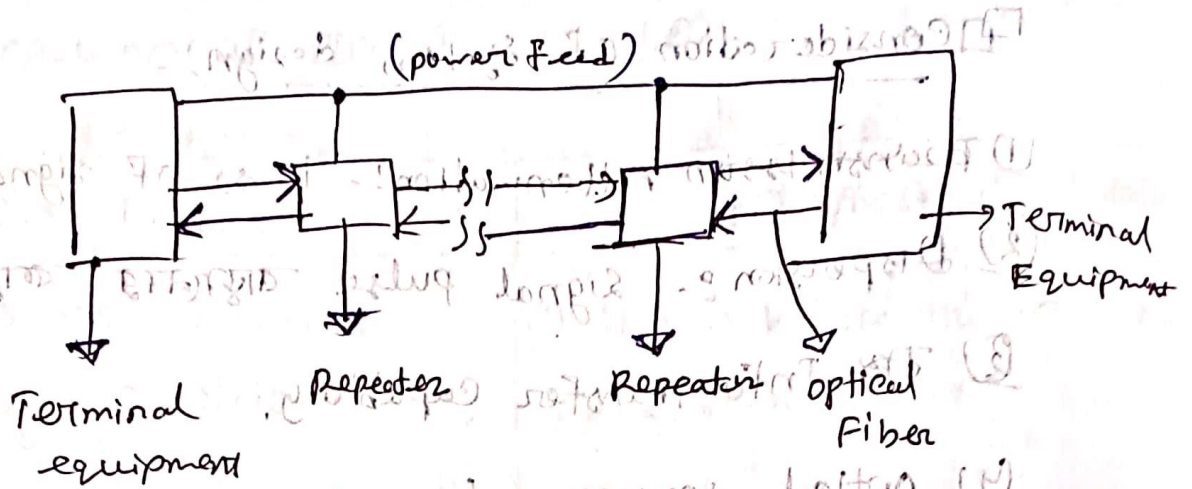 (power feed)
Terminal
Equipment
Terminal
equipment
Repeater
Repeater
optical
Fiber